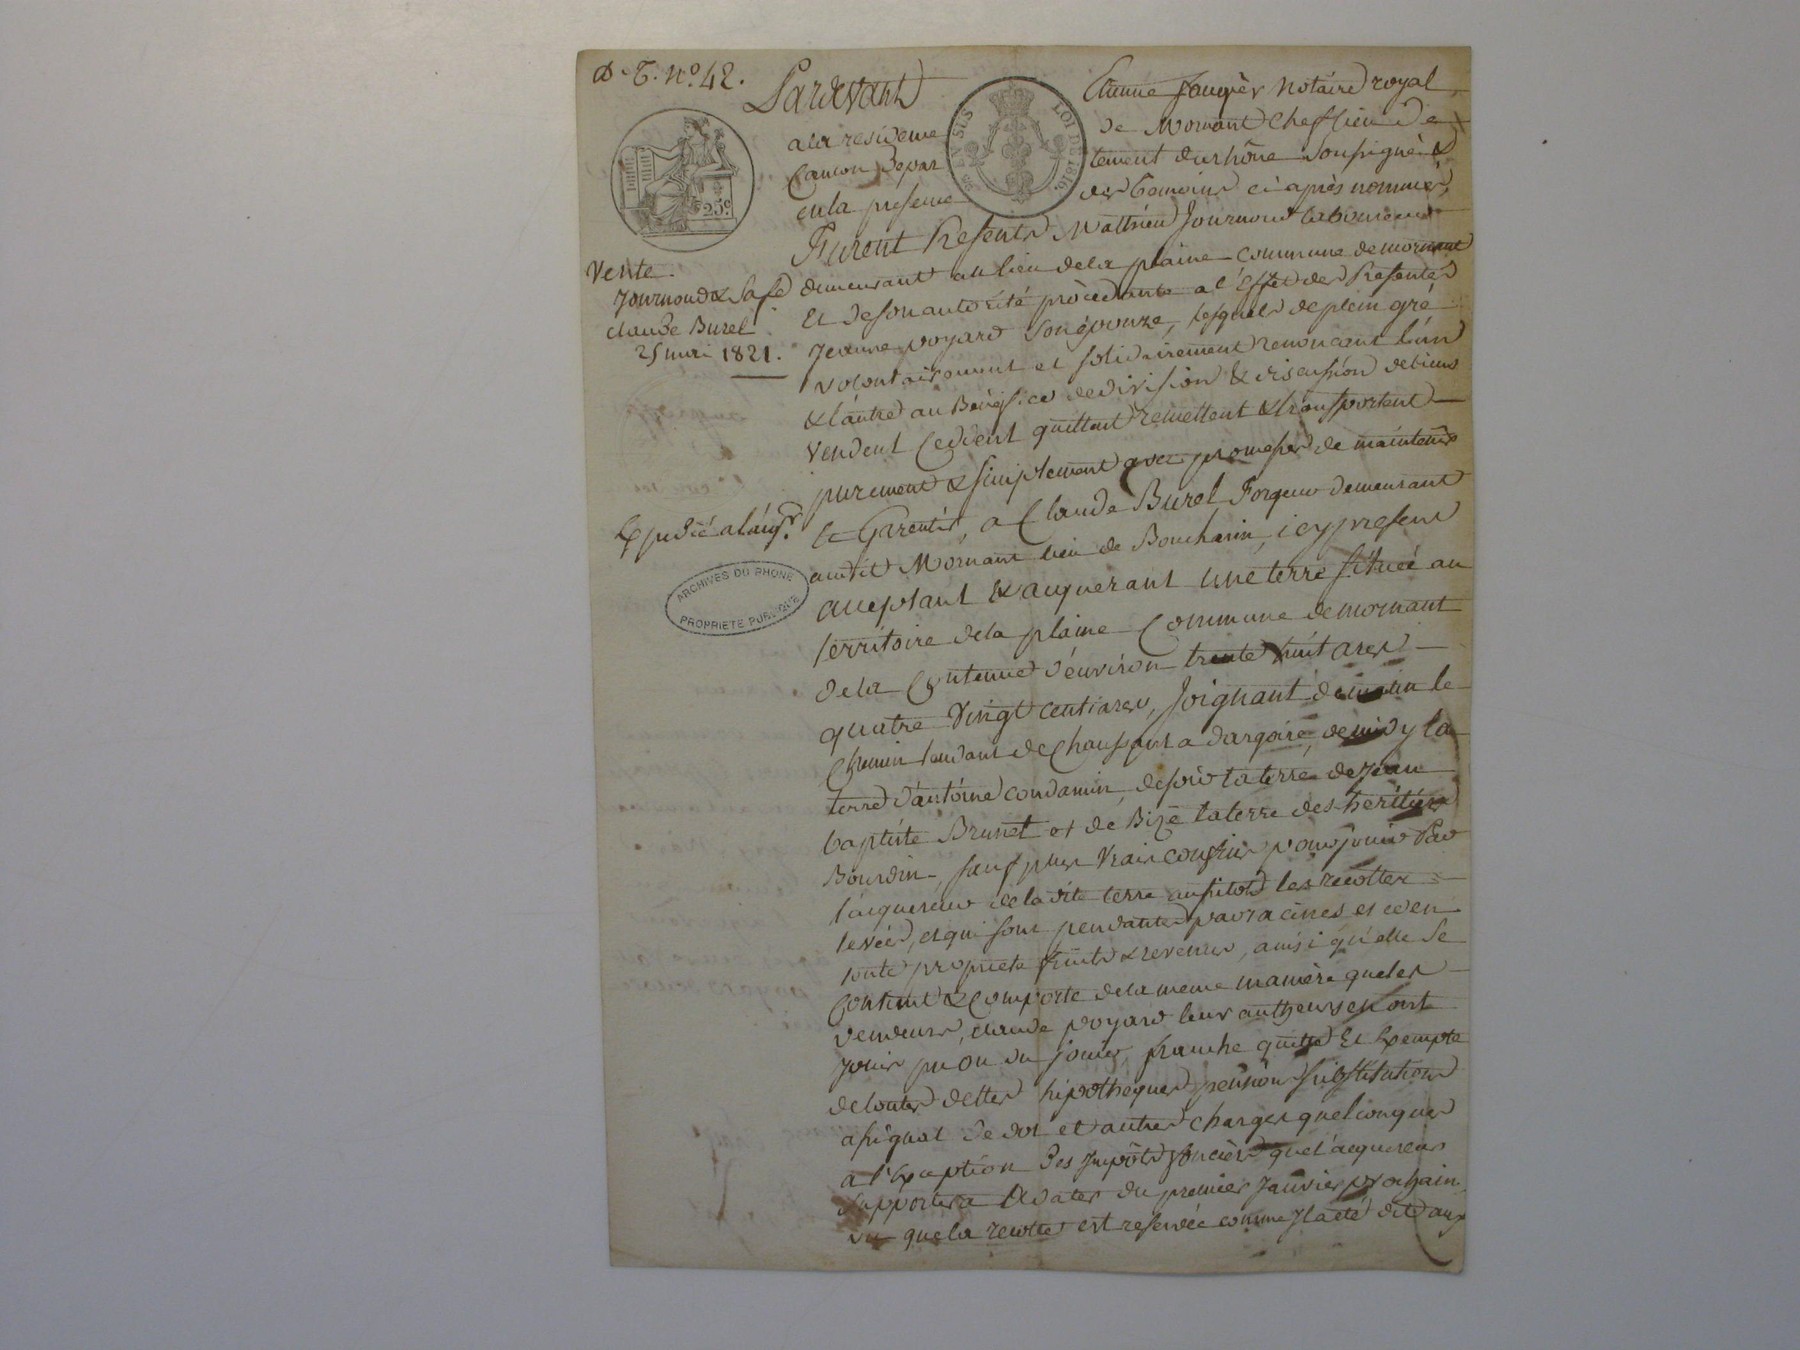 D. T. N.º 42.
Pardevant Etienne faugier Notaire royal
a la residence de Mornant Cheflieu de
Canton Depar tement durhône soussigné &
en la presence des temoins ci après nommés,
25 EN SUS
LOI DE 1816.
25.c
Furent Presents Matthieu Journoud laboureur
Vente.
Journoud & Sa fe
claude Burel
25 mai 1821.
demeurant au lieu dela plaine commune demornant
Et deson autorité procedante a l'Effet des Presentes
Jeanne poyard son épouze, lesquels deplein gré
volontairement et solidairement renoncant l'un
& l'autre au Benefice dedivision & discussion debiens
vendent cedent quittent remettent & transportent
purement & simplement avec promesse de maintenir
Expedié a l'aqr.
et Garentir, a Claude Burel Forgeur demeurant
audit Mornant lieu de Boucharin, icy present
acceptant & acquerant une terre située au
ARCHIVES DU RHONE
PROPRIETE PUBLIQUE
territoire dela plaine Commune demornant
dela Contenue d'environ trente huit ares
quatre vingt centiares, Joignant de matin le
Chemin tendant de Chaussant a dargoire, demidy la
terre d'antoine condamin, desoir la terre de Jean
baptiste Brunet et de Bize la terre des heritiers
Bourdin, sauf plus vrais confins pour jouir par
l'acquereur de ladite terre aussitot les recoltes
levées, et qui sont pendantes par racines et ce en
toute propriete fruits & revenus, ainsi qu'elle se
Contient & Comporte dela meme maniere que les
vendeurs, claude poyard leur autheur en ont
joui pu ou du jouir, franche quitte Et Exempte
detoutes dettes hipotheques pension substitution
assignat de dot et autres charges quelconques
a l'Exception des Impôts fonciers que l'acquereur
supportera A dater du premier Janvier prochain
vu que la recolte est reservée comme Il a eté dit aux